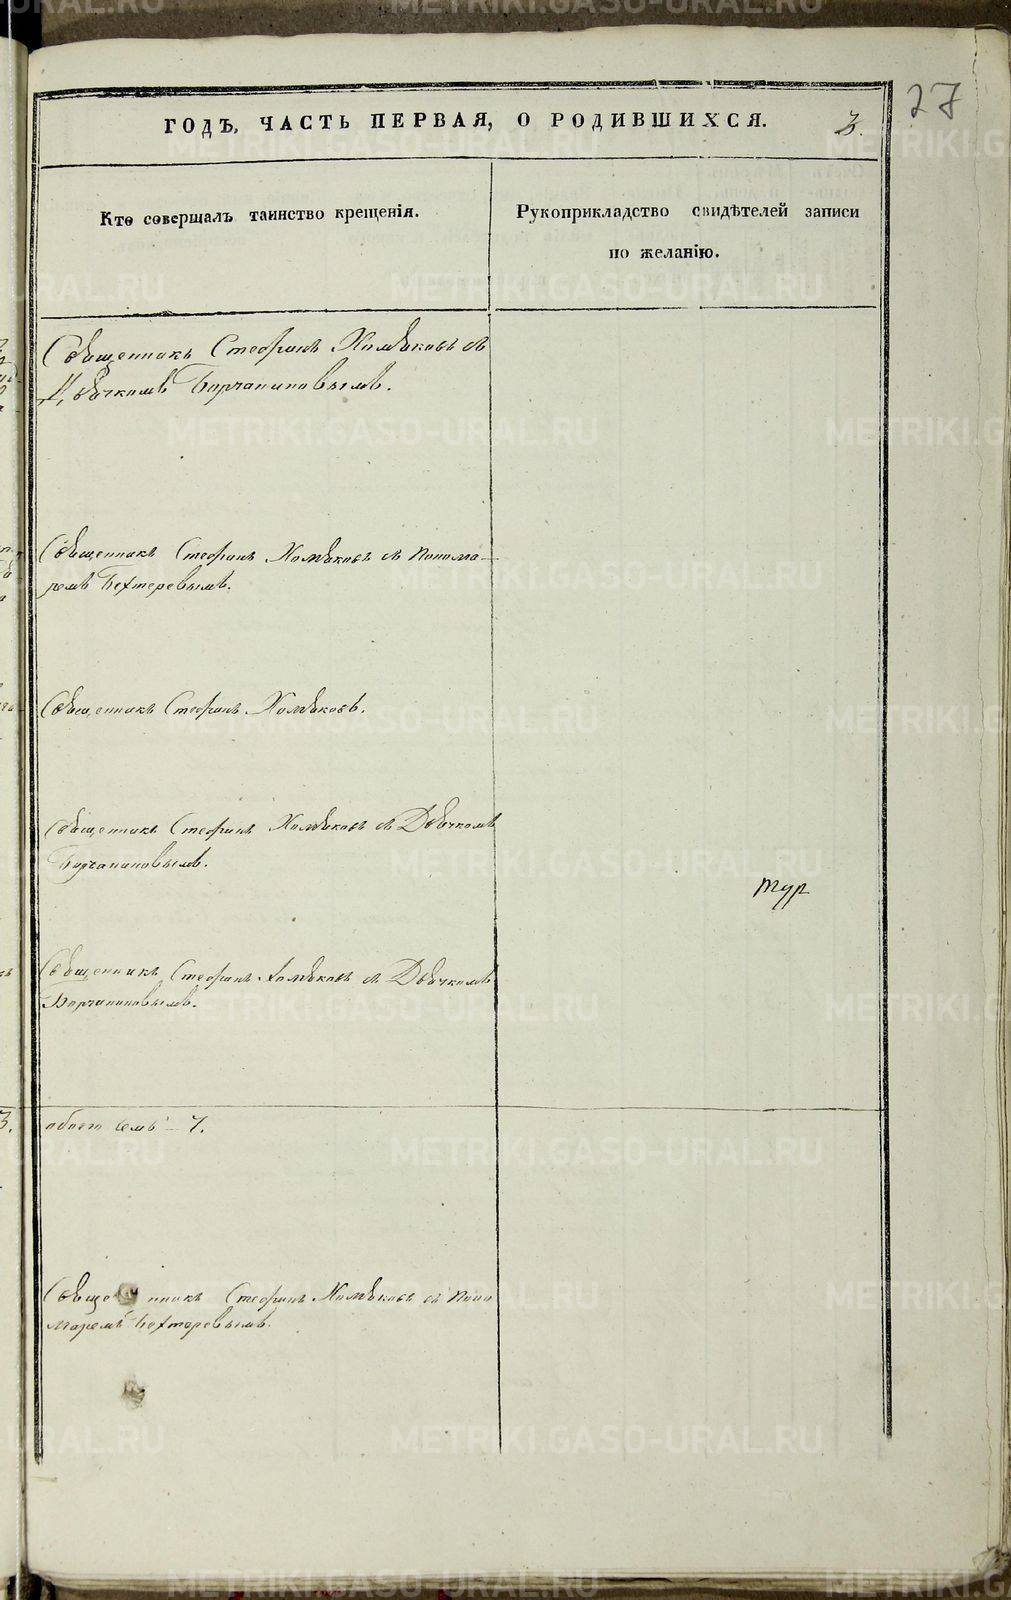 27
ГОДЪ, ЧАСТЬ ПЕРВАЯ, О РОДИВШИХСЯ. 3.
Кто совершалъ таинство крещенія.
Рукоприкладство свидѣтелей записи
по желанію.
Священникъ Стефанъ Хомяковъ съ
Дьячкомъ Борчаниновымъ.
Священникъ Стефанъ Хомяковъ съ Понома-
ремъ Бехтеревымъ.
Священникъ Стефанъ Хомяковъ.
Священникъ Стефанъ Хомяковъ съ Дьячкомъ
Борчаниновымъ.
Священникъ Стефанъ Хомяковъ съ Дьячкомъ
Борчаниновымъ.
обоего семь - 7.
Священникъ Стефанъ Хомяковъ съ Поно
маремъ Бехтеревымъ.
METRIKI.GASO-URAL.RU